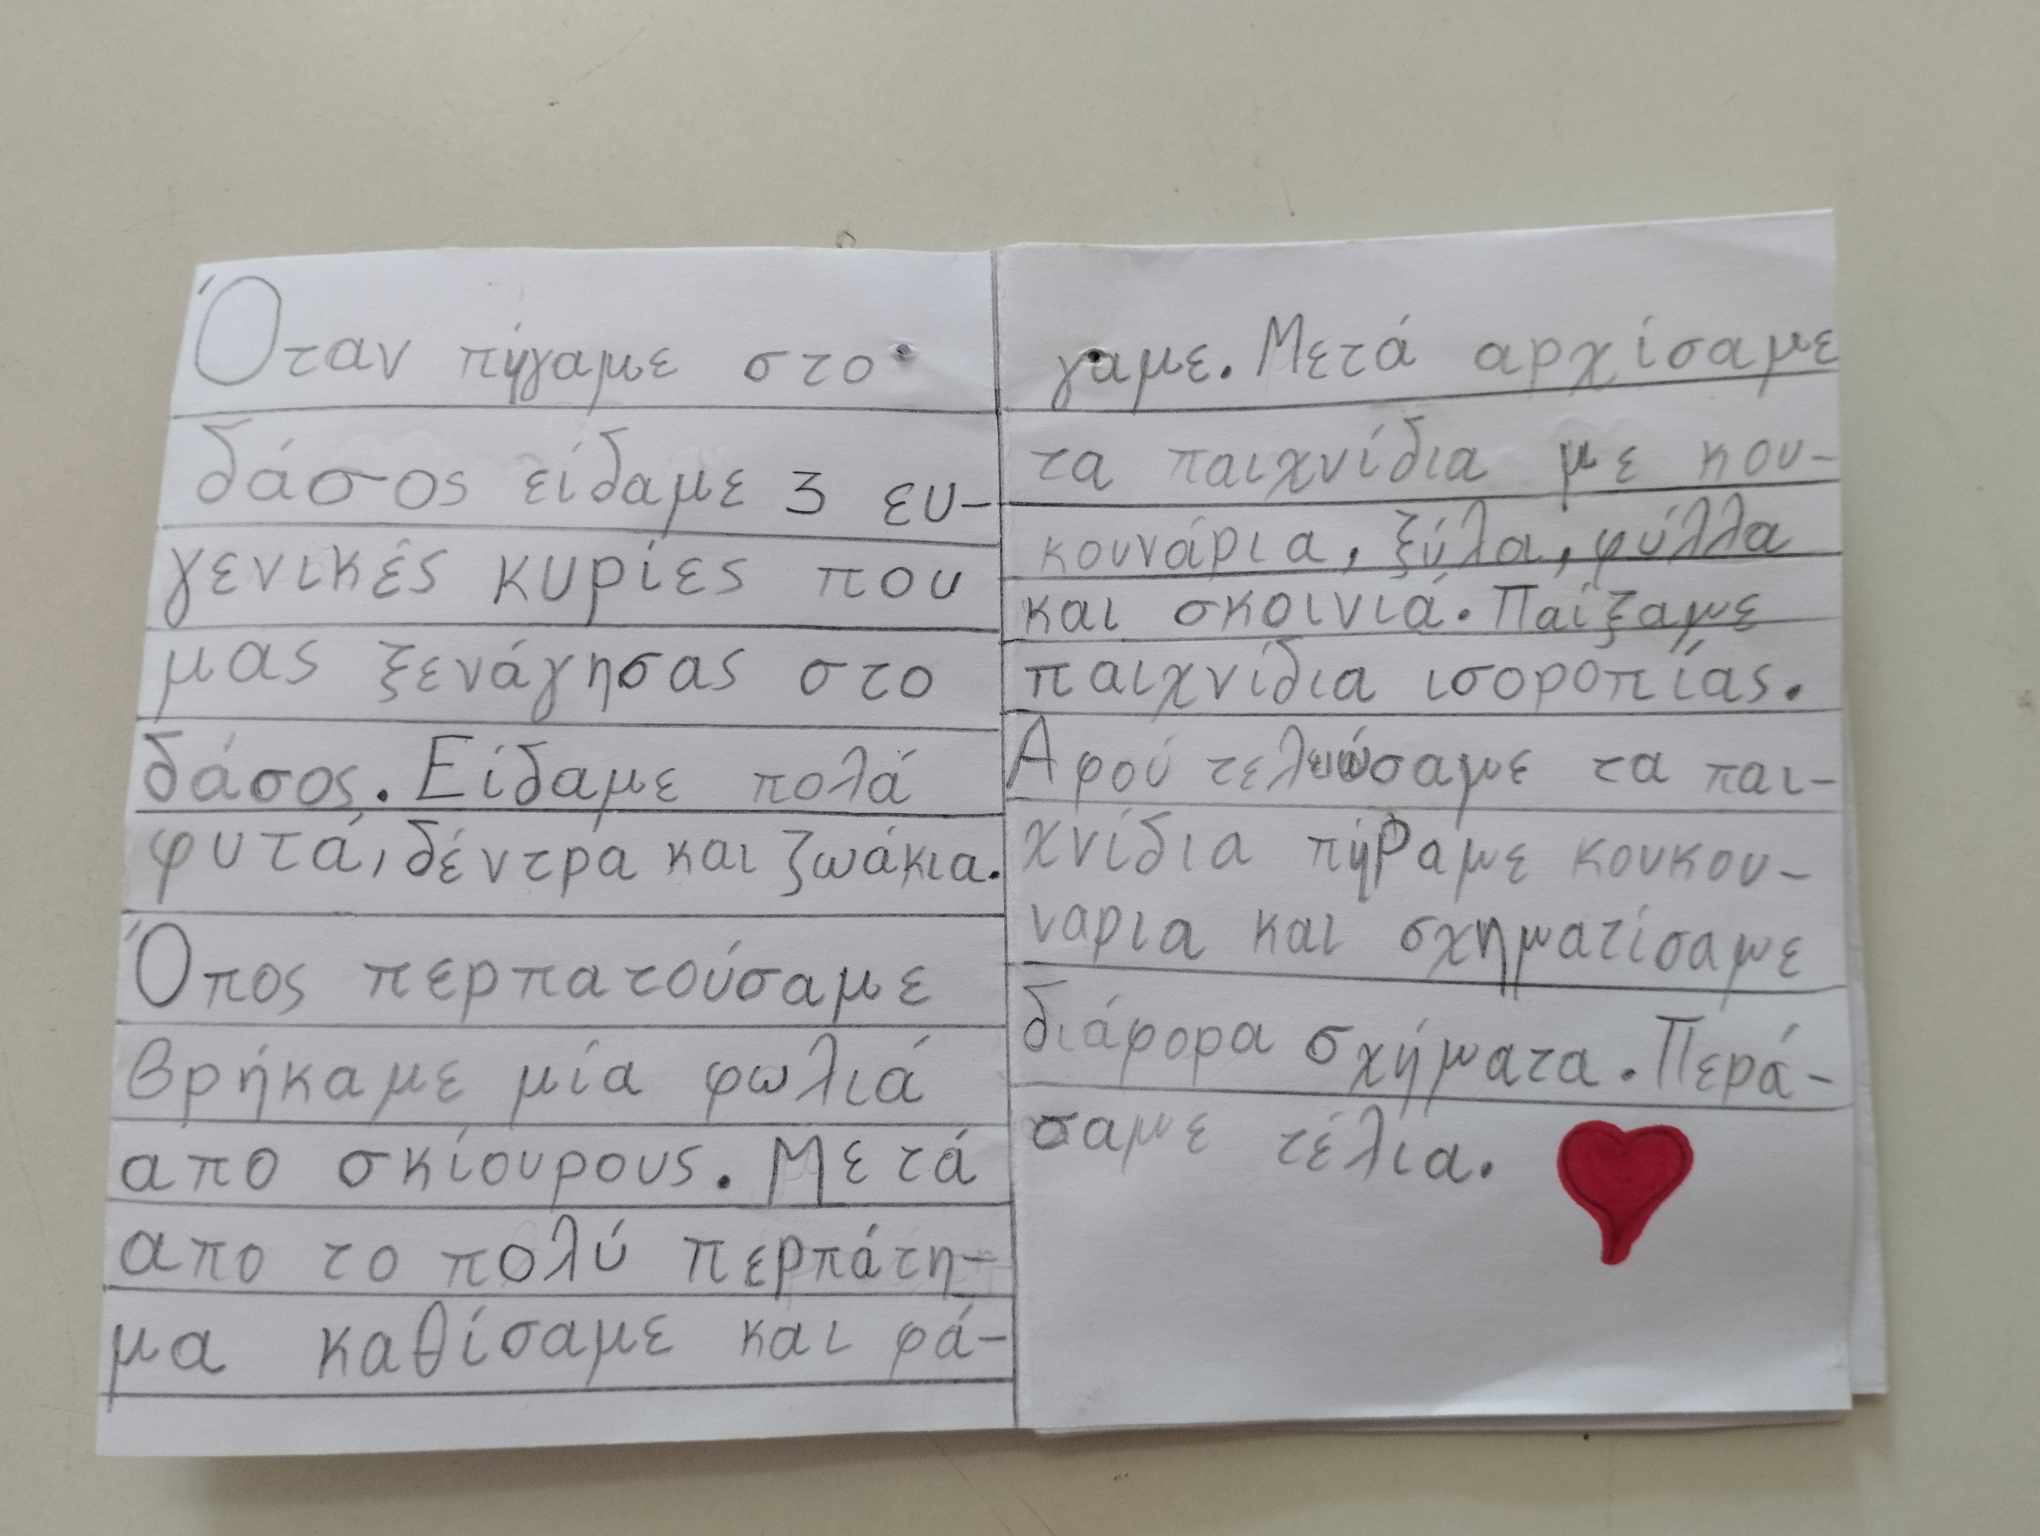 Όταν πήγαμε στο
δάσος είδαμε 3 ευ-
γενικές κυρίες που
μας ξενάγησας στο
δάσος. Είδαμε πολά
φυτά, δέντρα και ζωάκια.
Όπος περπατούσαμε
βρήκαμε μία φωλιά
απο σκίουρους. Μετά
απο το πολύ περπάτη-
μα καθίσαμε και φά-
γαμε. Μετά αρχίσαμε
τα παιχνίδια με κου-
κουνάρια, ξύλα, φύλλα
και σκοινιά. Παίξαμε
παιχνίδια ισοροπίας.
Αφού τελιώσαμε τα παι-
χνίδια πήραμε κουκου-
ναρια και σχηματίσαμε
διάφορα σχήματα. Περά-
σαμε τέλια.